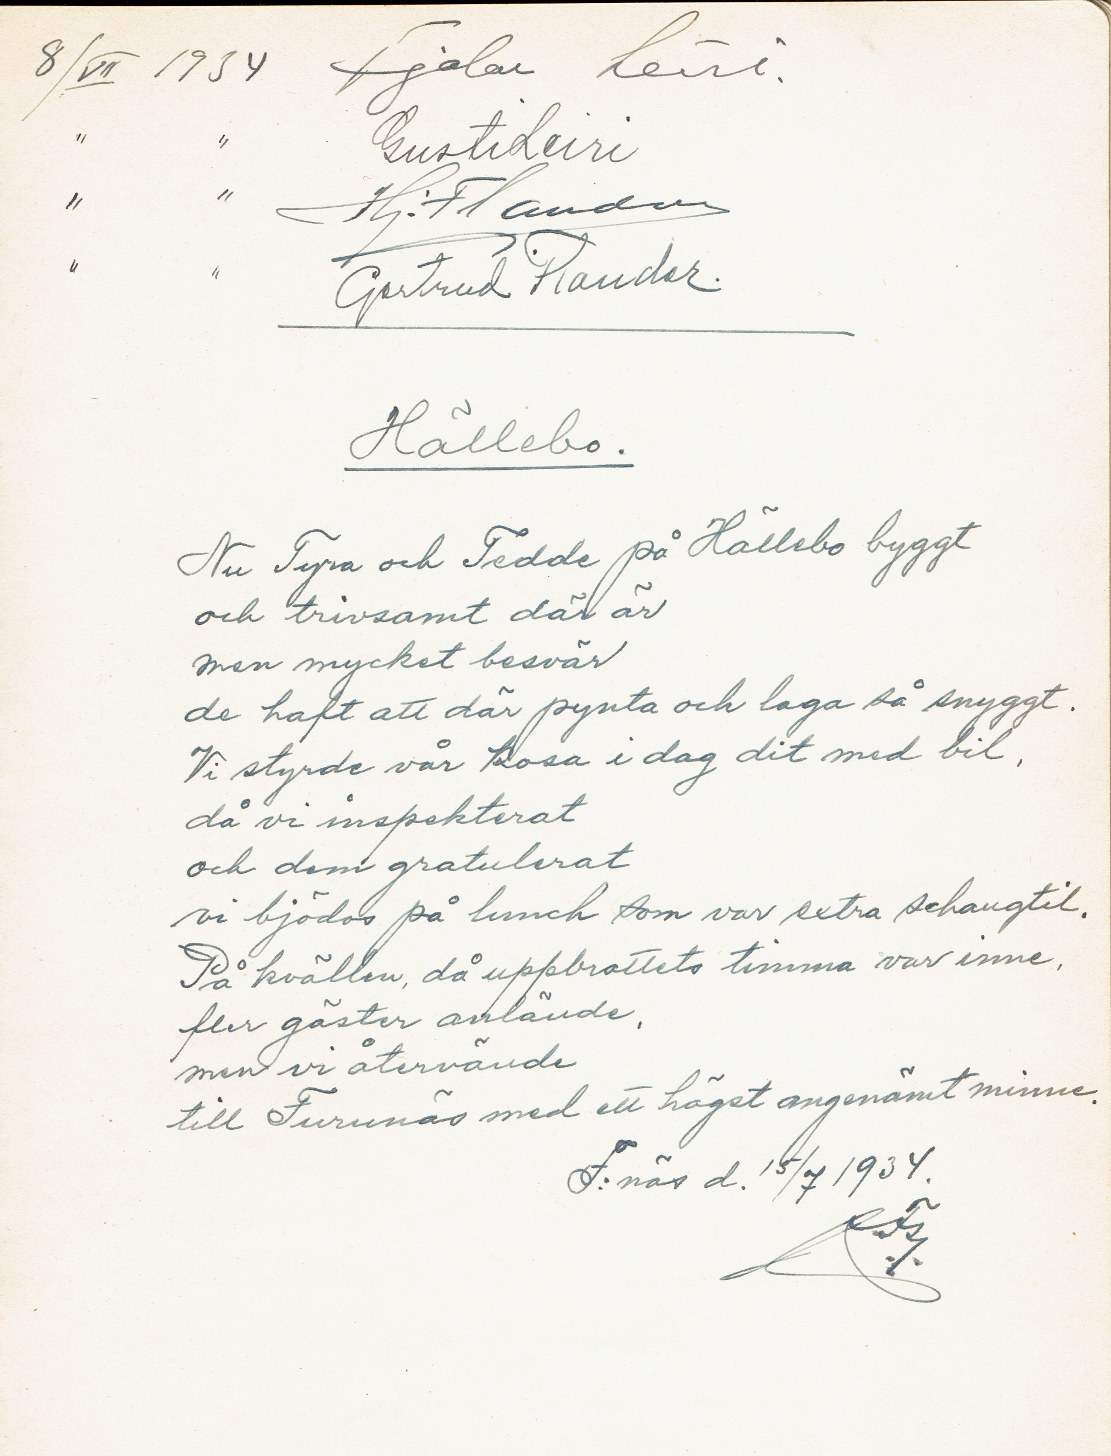 8/VII 1934 Fjalar Leiri.
" " Gusti Leiri
" " Hj. Flander
" " Gertrud Flander.
Hällebo.
Nu Tyra och Tedde på Hällebo byggt
och trivsamt där är
men mycket besvär
de haft att där pynta och laga så snyggt.
Vi styrde vår kosa i dag dit med bil,
då vi inspekterat
och dem gratulerat
vi bjödos på lunch som var extra schangtil.
På kvällen, då uppbrottets timma var inne,
fler gäster anlände,
men vi återvände
till Furunäs med ett högst angenämt minne.
F:näs d. 15/7 1934.